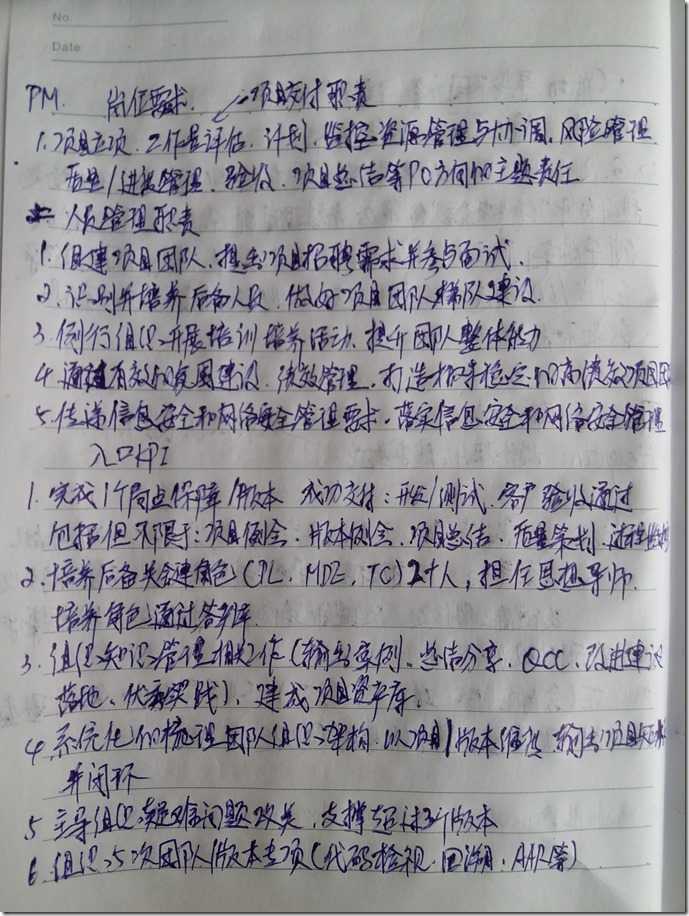 No.
Date
PM. 岗位要求. 项目交付职责
1. 项目立项. 工作量评估. 计划. 监控. 资源管理与协调. 风险管理.
质量/进度管理. 验收. 项目总结等PO方向的主题责任
人员管理职责
1. 组建项目团队. 提出项目招聘需求并参与面试.
2. 识别并培养后备人员, 做好项目团队梯队建设.
3. 例行组织开展培训培养活动, 提升团队整体能力
4. 通过有效的氛围建设. 绩效管理. 打造招等稳定的高绩效项目团
5. 传递信息安全和网络安全管理要求. 落实信息安全和网络安全管理
入口KPI
1. 完成1个局点保障/版本 成功交付: 开发/测试. 客户验收通过
包括但不限于: 项目例会. 版本例会. 项目总结. 质量策划. 过程
2. 培养后备关键角色(PL. MDE, TC) 2个人, 担任思想导师.
培养角色通过答辩.
3. 组织知识管理相关工作(输出案例. 总结分享. QCC. 改进建议
落地. 优秀实践), 建成项目资产库.
4 系统化的梳理团队组织架构. 以项目/版本维度 输出项目
并闭环
5 主导组织疑难问题攻关. 支撑超过3个版本
6. 组织5次团队/版本专项(代码检视. 回溯. AAR等)